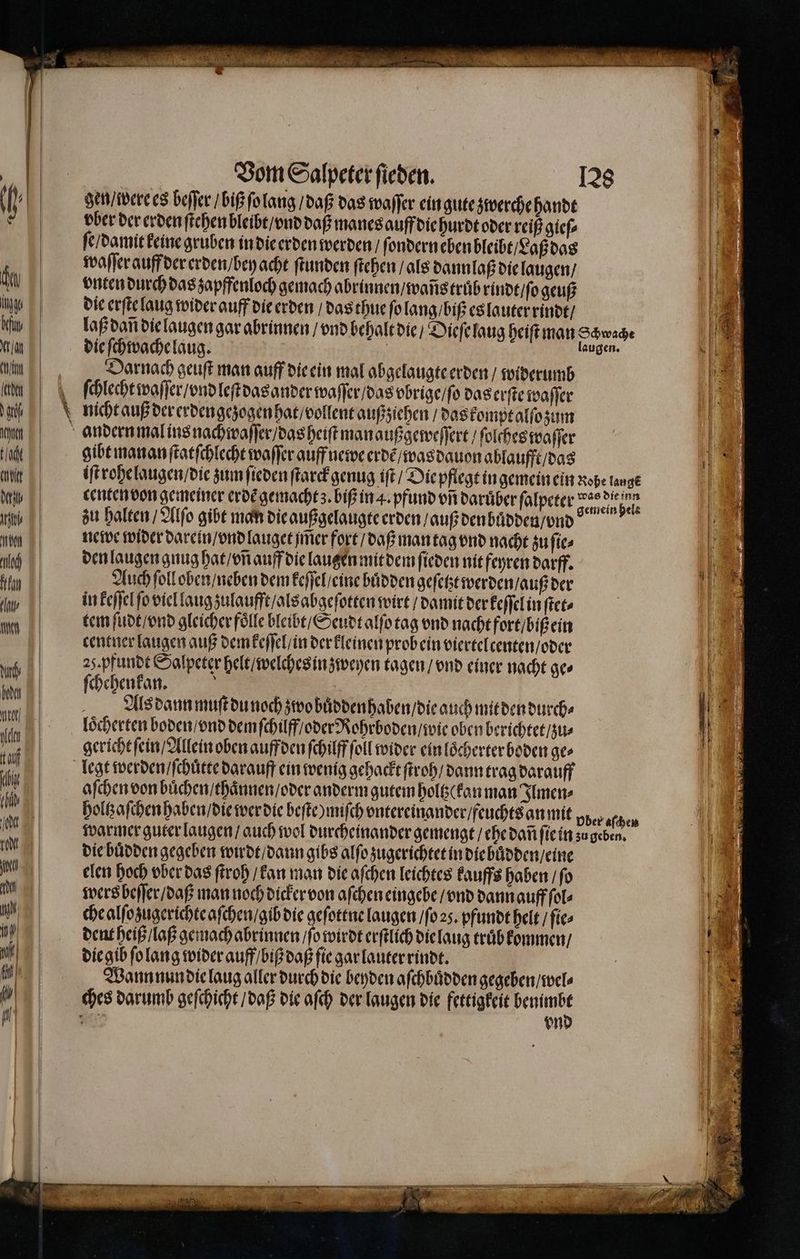 Vom Salpeter ſieden. 128
gen/were es beſſer/biß ſo lang/daß das waſſer ein gute zwerche handt
vber der erden ſtehen bleibt/vnd daß man es auff die hurdt oder reiß gieſ⸗
ſe/damit keine gruben in die erden werden/ſondern eben bleibt/Laß das
waſſer auff der erden/bey acht ſtunden ſtehen/als dann laß die laugen/
vnten durch das zapffenloch gemach abrinnen/wañs trůb rindt/ſo geuß
die erſte laug wider auff die erden/das thue ſo lang/biß es lauter rindt/
laß dañ die laugen gar abrinnen/vnd behalt die/Dieſe laug heiſt man
die ſchwache laug.
Schwache
laugen.
Darnach geuſt man auff die ein mal abgelaugte erden/widerumb
ſchlecht waſſer/vnd leſt das ander waſſer/das vbrige/ſo das erſte waſſer
nicht auß der erden gezogen hat/vollent außziehen/das kompt alſo zum
andern mal ins nachwaſſer/das heiſt man außgeweſſert/ſolches waſſer
gibt man an ſtat ſchlecht waſſer auff newe erdē/was dauon ablaufft/das
iſt rohe laugen/die zum ſieden ſtarck genug iſt/Die pflegt in gemein ein
centen von gemeiner erdē gemacht 3. biß in 4. pfund vñ darůber ſalpeter
zu halten/Alſo gibt man die außgelaugte erden/auß den bůdden/vnd
Rohe laugē
was die inn
gemein helt
newe wider darein/vnd lauget jm̃er fort/daß man tag vnd nacht zu ſie⸗
den laugen gnug hat/vñ auff die laugen mit dem ſieden nit feyren darff.
Auch ſoll oben/neben dem keſſel/eine bůdden geſetzt werden/auß der
in keſſel ſo viel laug zulaufft/als abgeſotten wirt/damit der keſſel in ſtet⸗
tem ſudt/vnd gleicher fölle bleibt/Seudt alſo tag vnd nacht fort/biß ein
centner laugen auß dem keſſel/in der kleinen prob ein viertel centen/oder
25. pfundt Salpeter helt/welches in zweyen tagen/vnd einer nacht ge⸗
ſchehen kan.
Als dann muſt du noch zwo bůdden haben/die auch mit den durch⸗
löcherten boden/vnd dem ſchilff/oder Rohrboden/wie oben berichtet/zu⸗
gericht ſein/Allein oben auff den ſchilff ſoll wider ein löcherter boden ge⸗
legt werden/ſchůtte darauff ein wenig gehackt ſtroh/dann trag darauff
aſchen von bůchen/thånnen/oder anderm gutem holtz (kan man Ilmen⸗
holtz aſchen haben/die wer die beſte) miſch vntereinander/feuchts an mit
warmer guter laugen/auch wol durcheinander gemengt/ehe dañ ſie in
vber aſchen
zu geben.
die bůdden gegeben wirdt/dann gibs alſo zugerichtet in die bůdden/eine
elen hoch vber das ſtroh/kan man die aſchen leichtes kauffs haben/ſo
wers beſſer/daß man noch dicker von aſchen eingebe/vnd dann auff ſol⸗
che alſo zugerichte aſchen/gib die geſottne laugen/ſo 25. pfundt helt/ſie⸗
dent heiß/laß gemach abrinnen/ſo wirdt erſtlich die laug trůb kommen/
die gib ſo lang wider auff/biß daß ſie gar lauter rindt.
Wann nun die laug aller durch die beyden aſchbůdden gegeben/wel⸗
ches darumb geſchicht/daß die aſch der laugen die fettigkeit benimbt
vnd